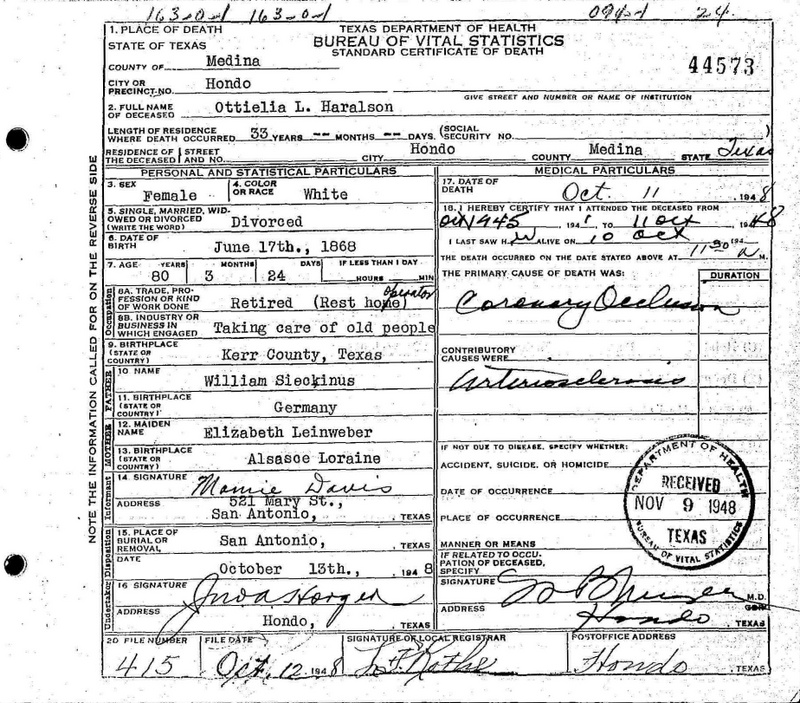 163-0-1 163-0-1 24
1. PLACE OF DEATH
STATE OF TEXAS
TEXAS DEPARTMENT OF HEALTH
BUREAU OF VITAL STATISTICS
STANDARD CERTIFICATE OF DEATH
COUNTY OF Medina
44573
CITY OR PRECINCT NO. Hondo
GIVE STREET AND NUMBER OR NAME OF INSTITUTION
2. FULL NAME OF DECEASED Ottielia L. Haralson
LENGTH OF RESIDENCE WHERE DEATH OCCURRED 33 YEARS -- MONTHS -- DAYS. (SOCIAL SECURITY NO. )
RESIDENCE OF THE DECEASED STREET AND NO. CITY Hondo COUNTY Medina STATE Texas
NOTE THE INFORMATION CALLED FOR ON THE REVERSE SIDE
PERSONAL AND STATISTICAL PARTICULARS
3. SEX Female
4. COLOR OR RACE White
5. SINGLE, MARRIED, WIDOWED OR DIVORCED (WRITE THE WORD) Divorced
6. DATE OF BIRTH June 17th., 1868
7. AGE YEARS MONTHS DAYS IF LESS THAN 1 DAY
80 3 24 HOURS MIN
Occupation
8A. TRADE, PROFESSION OR KIND OF WORK DONE Retired (Rest home operator
8B. INDUSTRY OR BUSINESS IN WHICH ENGAGED Taking care of old people
9. BIRTHPLACE (STATE OR COUNTRY) Kerr County, Texas
FATHER
10 NAME William Sieckinus
11. BIRTHPLACE (STATE OR COUNTRY) Germany
MOTHER
12. MAIDEN NAME Elizabeth Leinweber
13. BIRTHPLACE (STATE OR COUNTRY) Alsasce Loraine
Informant
14. SIGNATURE Mamie Davis
ADDRESS 521 Mary St.,
San Antonio, , TEXAS
Disposition
15. PLACE OF BURIAL OR REMOVAL San Antonio, , TEXAS
DATE October 13th., 1948
Undertaker
16 SIGNATURE Horger
ADDRESS Hondo, , TEXAS
MEDICAL PARTICULARS
17. DATE OF DEATH Oct. 11 , 1948
18. I HEREBY CERTIFY THAT I ATTENDED THE DECEASED FROM
Oct 1945 194 , TO 11 Oct 1948
I LAST SAW H ALIVE ON 10 Oct 194
THE DEATH OCCURRED ON THE DATE STATED ABOVE AT 11 30 a M.
THE PRIMARY CAUSE OF DEATH WAS: DURATION
Coronary Occlusion
CONTRIBUTORY CAUSES WERE
Arteriosclerosis
IF NOT DUE TO DISEASE, SPECIFY WHETHER:
ACCIDENT, SUICIDE, OR HOMICIDE
DATE OF OCCURRENCE
PLACE OF OCCURRENCE
MANNER OR MEANS
IF RELATED TO OCCUPATION OF DECEASED, SPECIFY
SIGNATURE M.D.
ADDRESS Hondo , TEXAS
DEPARTMENT OF HEALTH
RECEIVED
NOV 9 1948
TEXAS
BUREAU OF VITAL STATISTICS
20 FILE NUMBER FILE DATE SIGNATURE OF LOCAL REGISTRAR POSTOFFICE ADDRESS
415 Oct. 12 1948 Hondo , TEXAS